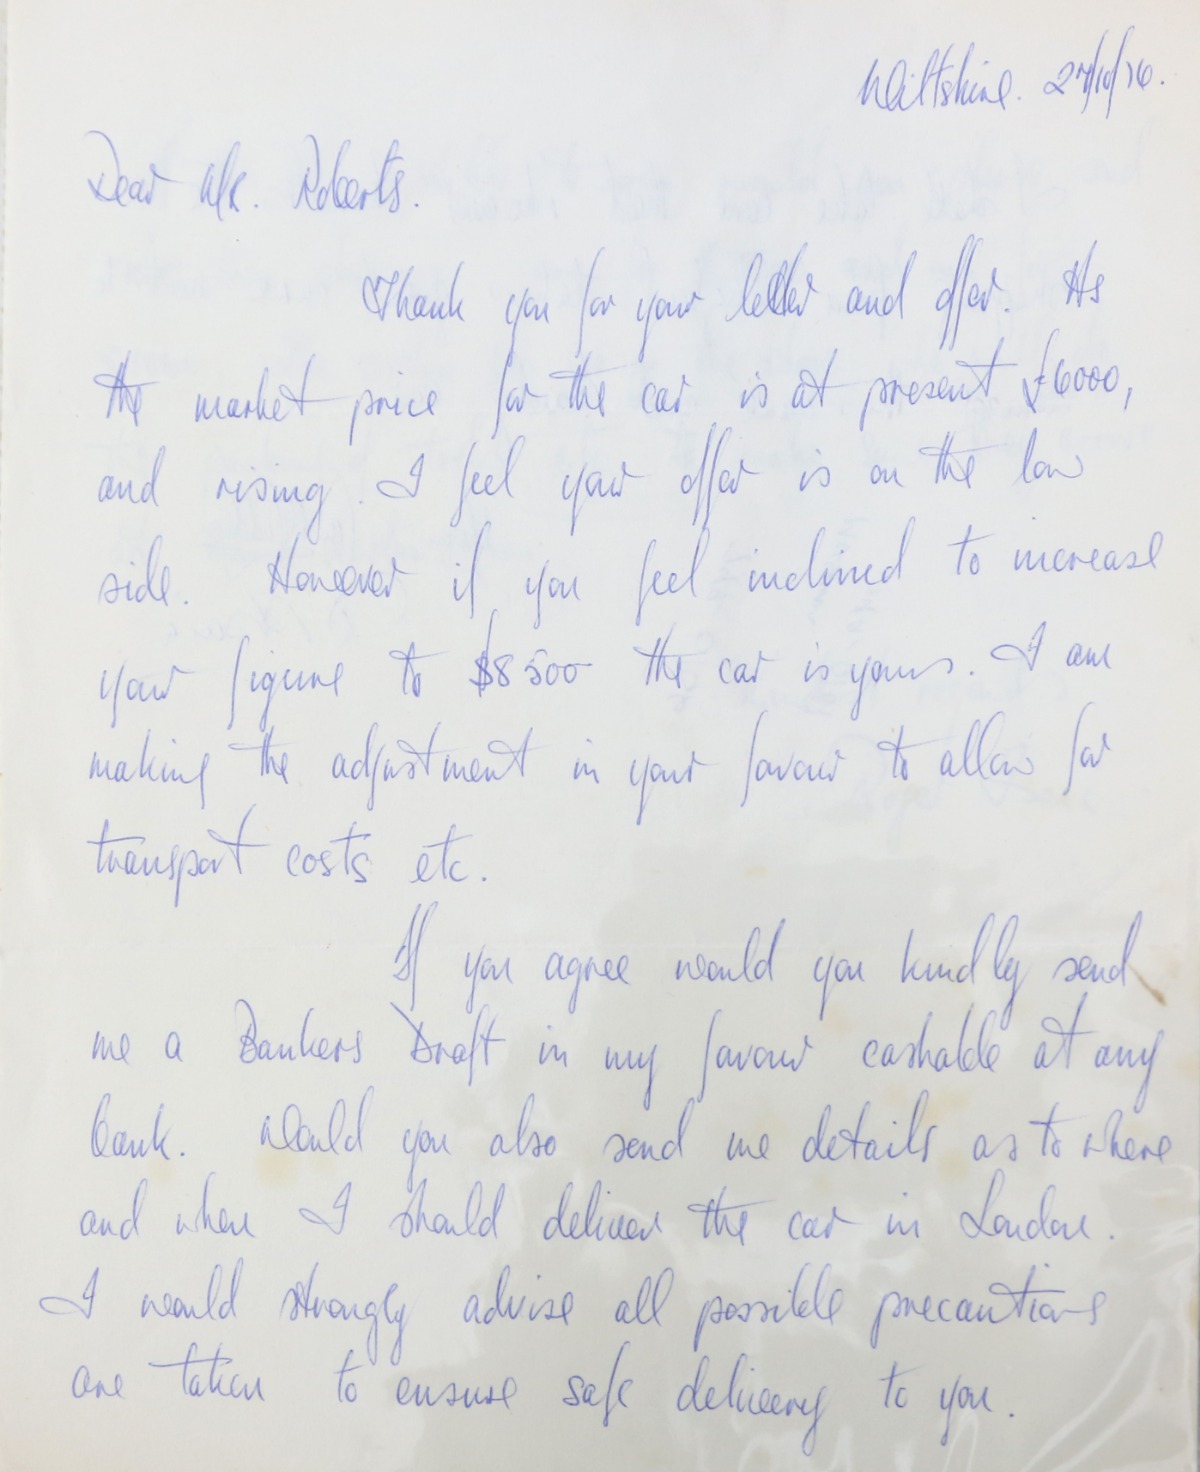 Wiltshire. 27/10/76.
Dear Mr. Roberts.
Thank you for your letter and offer. As
the market price for the car is at present £6000,
and rising. I feel your offer is on the low
side. However if you feel inclined to increase
your figure to $8500 the car is yours. I am
making the adjustment in your favour to allow for
transport costs etc.
If you agree would you kindly send
me a Bankers Draft in my favour cashable at any
bank. Would you also send me details as to where
and when I should deliver the car in London.
I would strongly advise all possible precautions
are taken to ensure safe delivery to you.